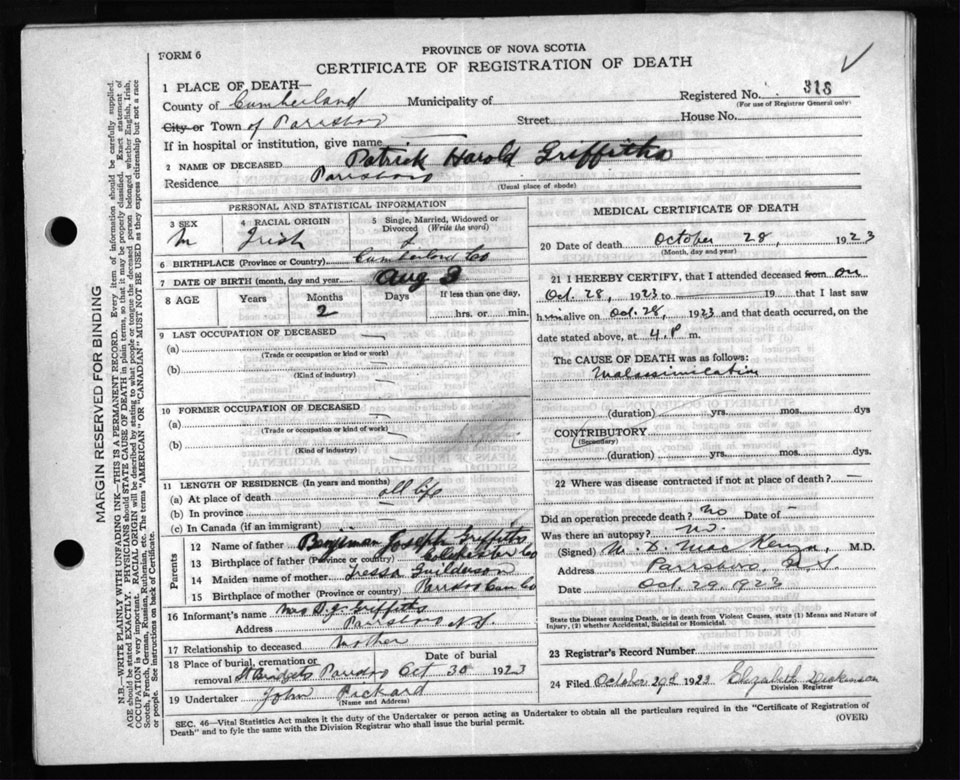 FORM 6
PROVINCE OF NOVA SCOTIA
CERTIFICATE OF REGISTRATION OF DEATH
1 PLACE OF DEATH—
Registered No. 318
(For use of Registrar General only)
County of Cumberland Municipality of
City or Town of Parrsboro Street House No.
If in hospital or institution, give name
2 NAME OF DECEASED Patrick Harold Griffiths
Residence Parrsboro
(Usual place of abode)
PERSONAL AND STATISTICAL INFORMATION
3 SEX M
4 RACIAL ORIGIN Irish
5 Single, Married, Widowed or Divorced (Write the word)
6 BIRTHPLACE (Province or Country) Cumberland Co
7 DATE OF BIRTH (month, day and year) Aug 3
8 AGE Years Months 2 Days If less than one day, hrs. or min.
9 LAST OCCUPATION OF DECEASED
(a)
(Trade or occupation or kind or work)
(b)
(Kind of industry)
10 FORMER OCCUPATION OF DECEASED
(a)
(Trade or occupation or kind of work)
(b)
(Kind of industry)
11 LENGTH OF RESIDENCE (In years and months)
(a) At place of death all life
(b) In province
(c) In Canada (if an immigrant)
Parents
12 Name of father Benjiman Joseph Griffiths
13 Birthplace of father (Province or country) Colchester Co
14 Maiden name of mother Tressa Guilderson
15 Birthplace of mother (Province or country) Parrsboro Cum Co
16 Informant's name Mrs B. J. Griffiths
Address Parrsboro N.S.
17 Relationship to deceased Mother
18 Place of burial, cremation or removal St Bridgets Parrsboro Date of burial Oct 30 1923
19 Undertaker John Pickard
(Name and Address)
MEDICAL CERTIFICATE OF DEATH
20 Date of death October 28, 1923
(Month, day and year)
21 I HEREBY CERTIFY, that I attended deceased from on
Oct. 28, 1923 to 19 that I last saw
him alive on Oct. 28, 1923 and that death occurred, on
date stated above, at 4 P m.
The CAUSE OF DEATH was as follows:
Malassimilation
(duration) yrs. mos. dys
CONTRIBUTORY
(Secondary)
(duration) yrs. mos. dys.
22 Where was disease contracted if not at place of death? —
Did an operation precede death? No Date of –
Was there an autopsy? No.
(Signed) Mac Kenzie, M.D.
Address Parrsboro, N.S.
Date Oct. 29, 1923
State the Disease Causing Death, or in death from Violent Causes, state (1) Means and Nature of Injury, (2) whether Accidental, Suicidal or Homicidal.
23 Registrar's Record Number
24 Filed October 29th 1923 Elizabeth Dickinson
Division Registrar
SEC. 46—Vital Statistics Act makes it the duty of the Undertaker or person acting as Undertaker to obtain all the particulars required in the "Certificate of Registration of
Death" and to fyle the same with the Division Registrar who shall issue the burial permit.
(OVER)
MARGIN RESERVED FOR BINDING
N.B.—WRITE PLAINLY WITH UNFADING INK—THIS IS A PERMANENT RECORD. Every item of information should be carefully supplied.
AGE should be stated EXACTLY. PHYSICIANS should STATE CAUSE OF DEATH in plain terms, so that it may be properly classified. Exact statement of
OCCUPATION is very important. RACIAL ORIGIN will be described by stating to what people or tongue the deceased person belonged whether English, Irish,
Scotch, French, German, Russian, Ruthenian, etc. The terms "AMERICAN" OR "CANADIAN" MUST NOT BE USED as they express citizenship but not a race
or people. See instructions on back of Certificate.